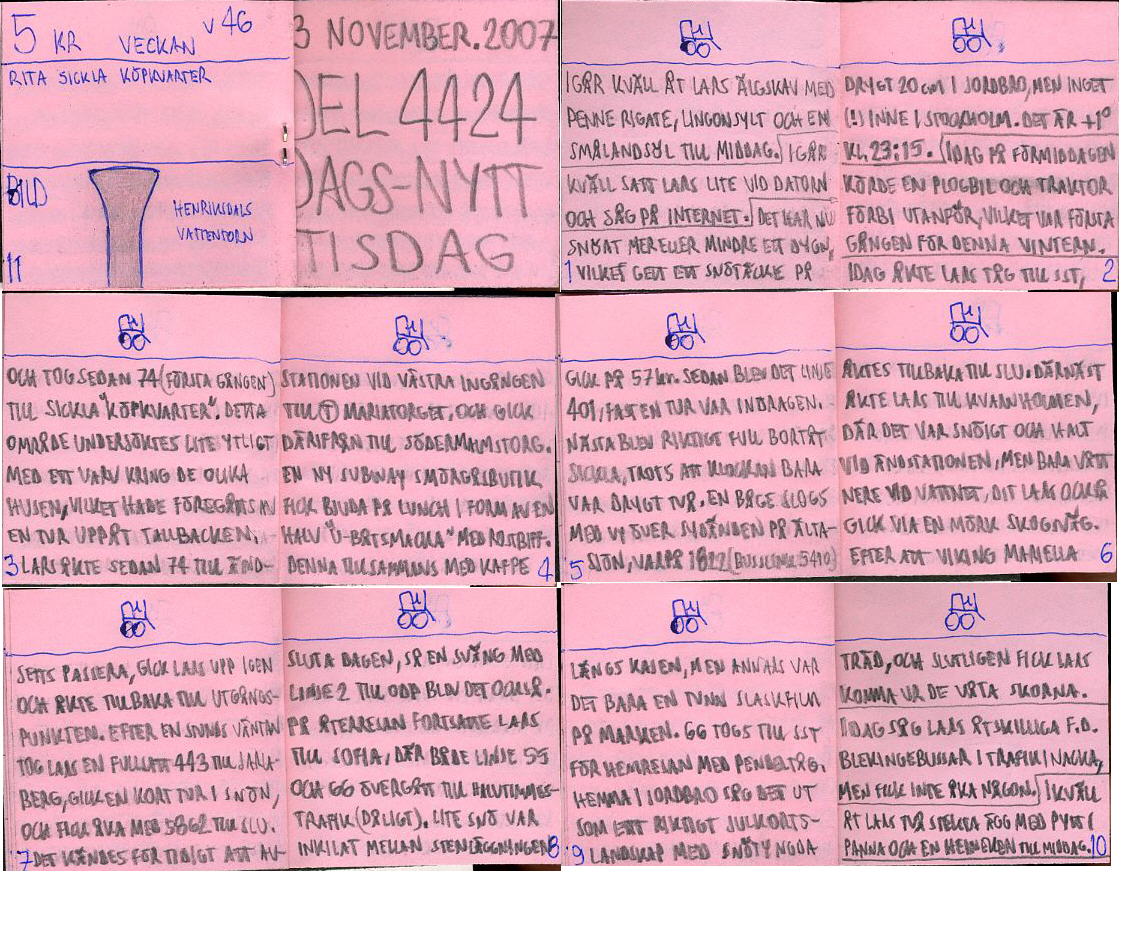 5 KR VECKAN V 46
RITA SICKLA KÖPKVARTER
BILD
HENRIKSDALS
VATTENTORN
11
3 NOVEMBER.2007
DEL 4424
DAGS-NYTT
TISDAG
IGÅR KVÄLL ÅT LARS ÄLGSKAV MED
PENNE RIGATE, LINGONSYLT OCH EN
SMÅLANDSÖL TILL MIDDAG. IGÅR
KVÄLL SATT LARS LITE VID DATORN
OCH SÅG PÅ INTERNET. DET HAR NU
SNÖAT MER ELLER MINDRE ETT DYGN,
VILKET GETT ETT SNÖTÄCKE PÅ
1
DRYGT 20 cm I JORDBRO, MEN INGET
(!) INNE I STOCKHOLM. DET ÄR +1°
KL. 23:15. IDAG PÅ FÖRMIDDAGEN
KÖRDE EN PLOGBIL OCH TRAKTOR
FÖRBI UTANFÖR, VILKET VAR FÖRSTA
GÅNGEN FÖR DENNA VINTERN.
IDAG ÅKTE LARS TÅG TILL SST,
2
OCH TOG SEDAN 74 (FÖRSTA GÅNGEN)
TILL SICKLA "KÖPKVARTER". DETTA
OMRÅDE UNDERSÖKTES LITE YTLIGT
MED ETT VARV KRING DE OLIKA
HUSEN, VILKET HADE FÖREGÅTTS AV
EN TUR UPPÅT TALLBACKEN.
3 LARS ÅKTE SEDAN 74 TILL ÄND-
STATIONEN VID VÄSTRA INGÅNGEN
TILL (T) MARIATORGET, OCH GICK
DÄRIFRÅN TILL SÖDERMALMSTORG.
EN NY SUBWAY SMÖRGÅSBUTIK
FICK BJUDA PÅ LUNCH I FORM AV EN
HALV "U-BÅTSMACKA" MED ROSTBIFF.
DENNA TILLSAMMANS MED KAFFE 4
GICK PÅ 57 kr. SEDAN BLEV DET LINJE
401, FAST EN TUR VAR INDRAGEN.
NÄSTA BLEV RIKTIGT FULL BORTÅT
SICKLA, TROTS ATT KLOCKAN BARA
VAR DRYGT TVÅ. EN BÅGE SLOGS
MED VY ÖVER SJÖÄNDEN PÅ ÄLTA-
5 SJÖN, VARPÅ 1822 (BUSSLINK 5410)
ÅKTES TILLBAKA TILL SLU. DÄRNÄST
ÅKTE LARS TILL KVARNHOLMEN,
DÄR DET VAR SNÖIGT OCH HALT
VID ÄNDSTATIONEN, MEN BARA VÅTT
NERE VID VATTNET, DIT LARS OCKSÅ
GICK VIA EN MÖRK SKOGSVÄG.
EFTER ATT VIKING MARIELLA 6
SETTS PASSERA, GICK LARS UPP IGEN
OCH ÅKTE TILLBAKA TILL UTGÅNGS-
PUNKTEN. EFTER EN STUNDS VÄNTAN
TOG LARS EN FULLSATT 443 TILL JARLA-
BERG, GICK EN KORT TUR I SNÖN,
OCH FICK ÅKA MED 5862 TILL SLU.
7 DET KÄNDES FÖR TIDIGT ATT AV-
SLUTA DAGEN, SÅ EN SVÄNG MED
LINJE 2 TILL ODP BLEV DET OCKSÅ.
PÅ ÅTERRESAN FORTSATTE LARS
TILL SOFIA, DÄR BÅDE LINJE 55
OCH 66 ÖVERGÅTT TILL HALVTIMMES-
TRAFIK (DÅLIGT). LITE SNÖ VAR
INKILAT MELLAN STENLÄGGNINGEN 8
LÄNGS KAJEN, MEN ANNARS VAR
DET BARA EN TUNN SLASKFILM
PÅ MARKEN. 66 TOGS TILL SST
FÖR HEMRESAN MED PENDELTÅG.
HEMMA I JORDBRO SÅG DET UT
SOM ETT RIKTIGT JULKORTS-
9 LANDSKAP MED SNÖTYNGDA
TRÄD, OCH SLUTLIGEN FICK LARS
KOMMA UR DE VÅTA SKORNA.
IDAG SÅG LARS ÅTSKILLIGA F.D.
BLEKINGEBUSSAR I TRAFIK I NACKA,
MEN FICK INTE ÅKA NÅGON. IKVÄLL
ÅT LARS TVÅ STEKTA ÄGG MED PYTT I
PANNA OCH EN HEINEKEN TILL MIDDAG. 10